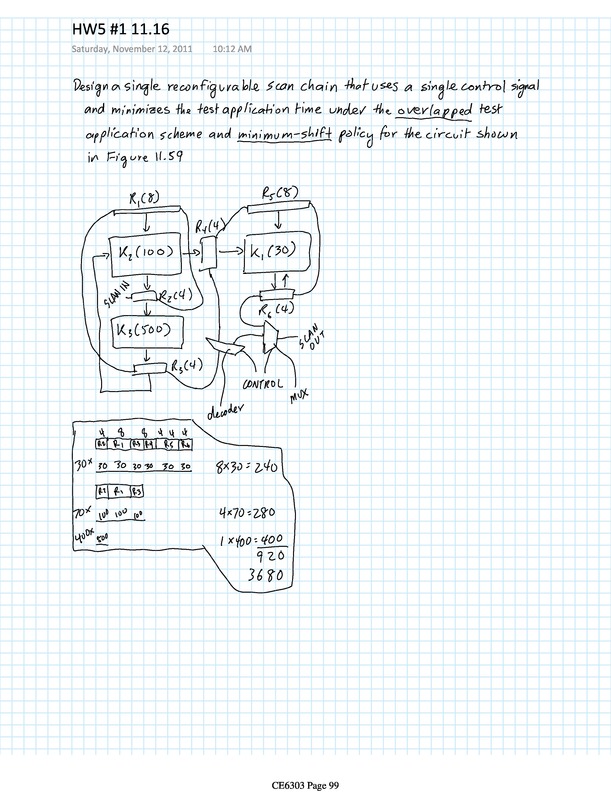 HW5 #1 11.16
Saturday, November 12, 2011 10:12 AM
Design a single reconfigurable scan chain that uses a single control signal
and minimizes the test application time under the overlapped test
application scheme and minimum-shift policy for the circuit shown
in Figure 11.59
R1(8) R5(8)
R4(4)
K2(100) K1(30)
SCAN IN R2(4)
R6(4)
K3(500)
SCAN OUT
R3(4)
CONTROL
decoder MUX
4 8 8 4 4 4
R2 R1 R3 R4 R5 R6
30x 30 30 30 30 30 30 8x30=240
R2 R1 R3
70x 100 100 100 4x70=280
400x 500 1x400=400
920
3680
CE6303 Page 99